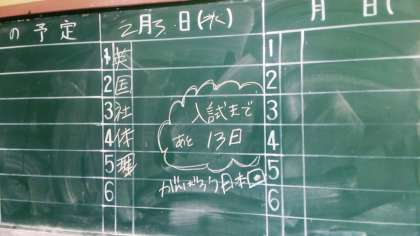 の予定
2月3日(水)
月 日(
1 英
2 国
3 社
4 体
5 理
6
入試まで
あと 13日
がんばろう日本
1
2
3
4
5
6